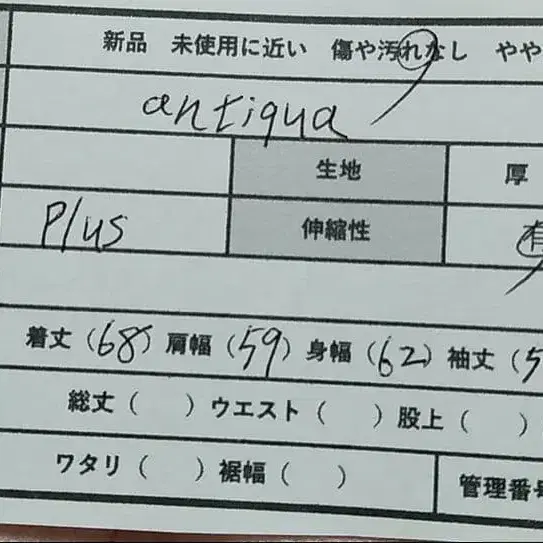 新品 未使用に近い 傷や汚れなし やや
antiqua
生地 厚
Plus 伸縮性 有
着丈（68）肩幅（59）身幅（62）袖丈（5
総丈（ ）ウエスト（ ）股上（ ）
ワタリ（ ）裾幅（ ） 管理番号